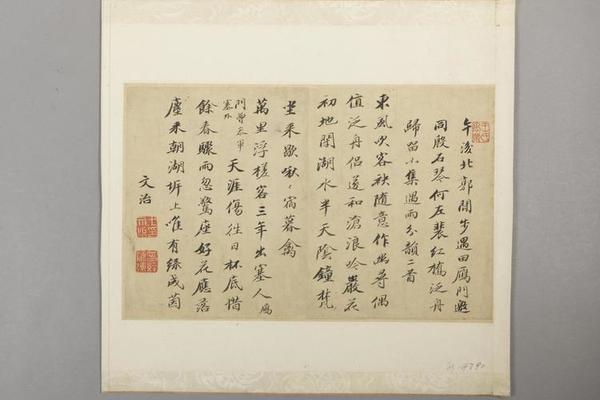 午後北郭閒步遇田鴈門邀
同殷石琴何左裴紅橋泛舟
歸留小集遇雨分韻二首
東風吹客袂隨意作幽尋偶
值泛舟侶遂和滄浪吟巖花
初地閉湖水半天陰鐘梵
坐來歇啾〻宿暮禽
萬里浮槎客三年出塞人鴈
門曾參軍
塞外
天涯傷往日杯底惜
餘春驟雨忽驚座好花應落
塵來朝湖上唯有綠成茵
文治